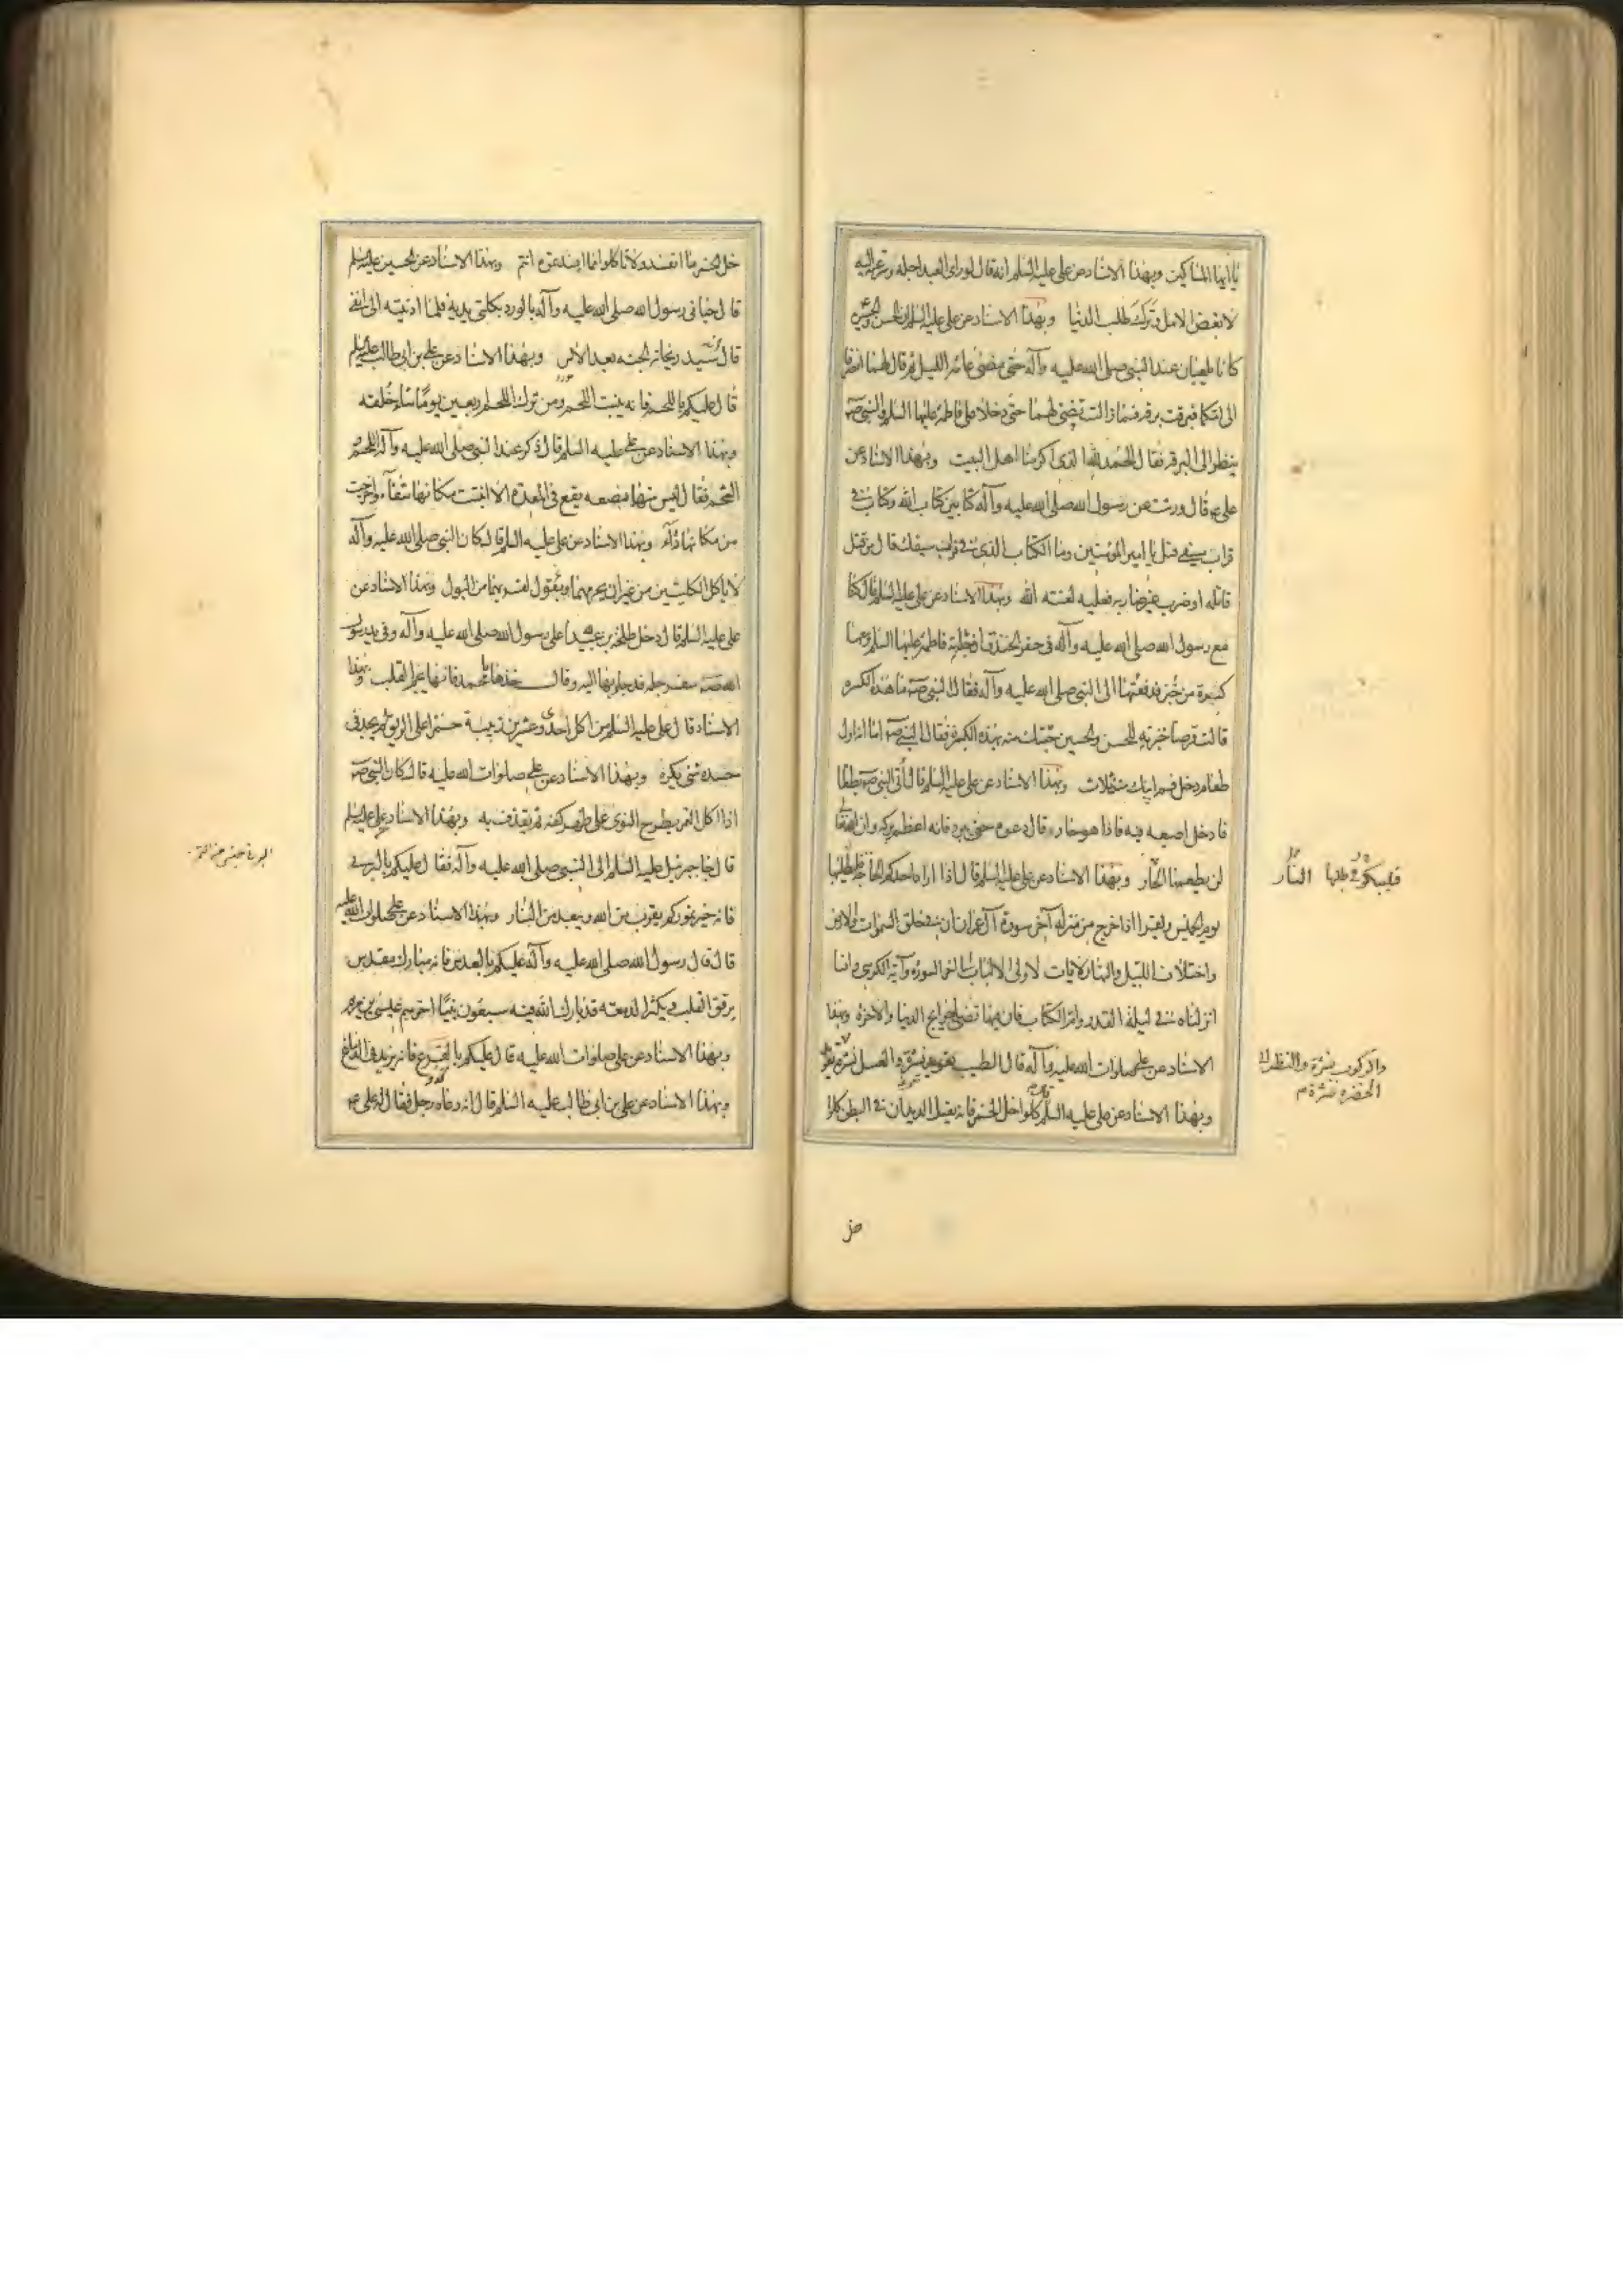 يا ايها المساكين وبهذا الاسناد عن علي عليه السلم انه قال لو راى العبد اجله وسرعته اليه
لابغض الامل وترك طلب الدنيا وبهذا الاسناد عن علي عليه السلم ان الحسن والحسين
كانا يلعبان عند النبي صلى الله عليه وآله حتى مضى عامة الليل ثم قال لهما انصرفا
الى امكما فبرقت برقة فما زالت تضئ لهما حتى دخلا على فاطمة عليها السلم والنبي صه
ينظر الى البرقة فقال الحمد لله الذى اكرمنا اهل البيت وبهذا الاسناد عن
علي ع قال ورثت عن رسول الله صلى الله عليه وآله كتابين كتاب الله وكتاب في
قراب سيفي قيل يا امير المؤمنين وما الكتاب الذى في قراب سيفك قال من قتل
غير قاتله او ضرب غير ضاربه فعليه لعنة الله وبهذا الاسناد عن علي عليه السلم قال كنا
مع رسول الله صلى الله عليه وآله في حفر الخندق اذ جائته فاطمة عليها السلم ومعها
كسيرة من خبز فدفعتها الى النبي صلى الله عليه وآله فقال النبي صه ما هذه الكسرة
قالت قرصا خبزته للحسن والحسين جئتك منه بهذه الكسرة فقال النبي صه اما انه اول
طعام دخل فم ابيك منذ ثلاث وبهذا الاسناد عن علي عليه السلم قال أتى النبي صه بطعام
فادخل اصبعه فيه فاذا هو حار قال دعوه حتى يبرد فانه اعظم بركة وان الله تعالى
لم يطعمنا الحار وبهذا الاسناد عن علي عليه السلم قال اذا اراد احدكم الحاجة فليطلبها
يوم الخميس وليقرا اذا خرج من منزله آخر سورة آل عمران ان في خلق السموات والارض
واختلاف الليل والنهار لآيات لاولى الالباب الى آخر السورة وآية الكرسى وانا
انزلناه في ليلة القدر وام الكتاب فان فيها قضاء لحوايج الدنيا والآخرة وبهذا
الاسناد عن علي صلوات الله عليه وآله قال الطيب نشرة والعسل نشرة
وبهذا الاسناد عن علي عليه السلم كلوا خل الخمر فانه يقتل الديدان في البطن كلوا
فليبكر في طلبها
النار
والركوب نشرة والنظر الى
الخضرة نشرة
خل الخمر ما انفسد ولا تأكلوا ما افسدتموه انتم وبهذا الاسناد عن الحسين عليه السلم
قال حيانى رسول الله صلى الله عليه وآله بالورد بكلتى يديه فلما ادنيته الى انفى
قال انه سيد ريحان الجنة بعد الآس وبهذا الاسناد عن علي بن ابى طالب عليه السلم
قال عليكم باللحم فانه ينبت اللحم ومن ترك اللحم اربعين يوما ساء خلقه
وبهذا الاسناد عن علي عليه السلم قال ذكر عند النبي صلى الله عليه وآله اللحم و
الشحم فقال ليس منها مضغة يقع في المعدة الا انبتت مكانها شفآء واخرجت
من مكانها دآء وبهذا الاسناد عن علي عليه السلم قال كان النبي صلى الله عليه وآله
لا يأكل الكليتين من غير ان يحرمهما ويقول لقربهما من البول وبهذا الاسناد عن
علي عليه السلم قال دخل طلحة بن عبيد الله على رسول الله صلى الله عليه وآله وفى يد رسول
الله صه سفرجلة قد جاء بها اليه وقال خذها يا محمد فانها تجم القلب وبهذا
الاسناد قال علي عليه السلم من اكل احدى وعشرين زبيبة حمراء على الريق لم يجد فى
جسده شئ يكره وبهذا الاسناد عن علي صلوات الله عليه قال كان النبي صه
اذا اكل التمر يطرح النوى على ظهر كفه ثم يقذف به وبهذا الاسناد عن علي عليه السلم
قال جاء جبرئيل عليه السلم الى النبي صلى الله عليه وآله فقال عليكم بالبرنى
فانه خير تموركم يقرب من الله ويبعد من النار وبهذا الاسناد عن علي صلوات الله عليه
قال قال رسول الله صلى الله عليه وآله عليكم بالعدس فانه مبارك مقدس
يرقق القلب ويكثر الدمعة قد بارك الله فيه سبعون نبيا آخرهم عيسى بن مريم
وبهذا الاسناد عن علي صلوات الله عليه قال عليكم بالقرع فانه يزيد في الدماغ
وبهذا الاسناد عن علي بن ابى طالب عليه السلم قال انه دعاه رجل فقال له علي ع